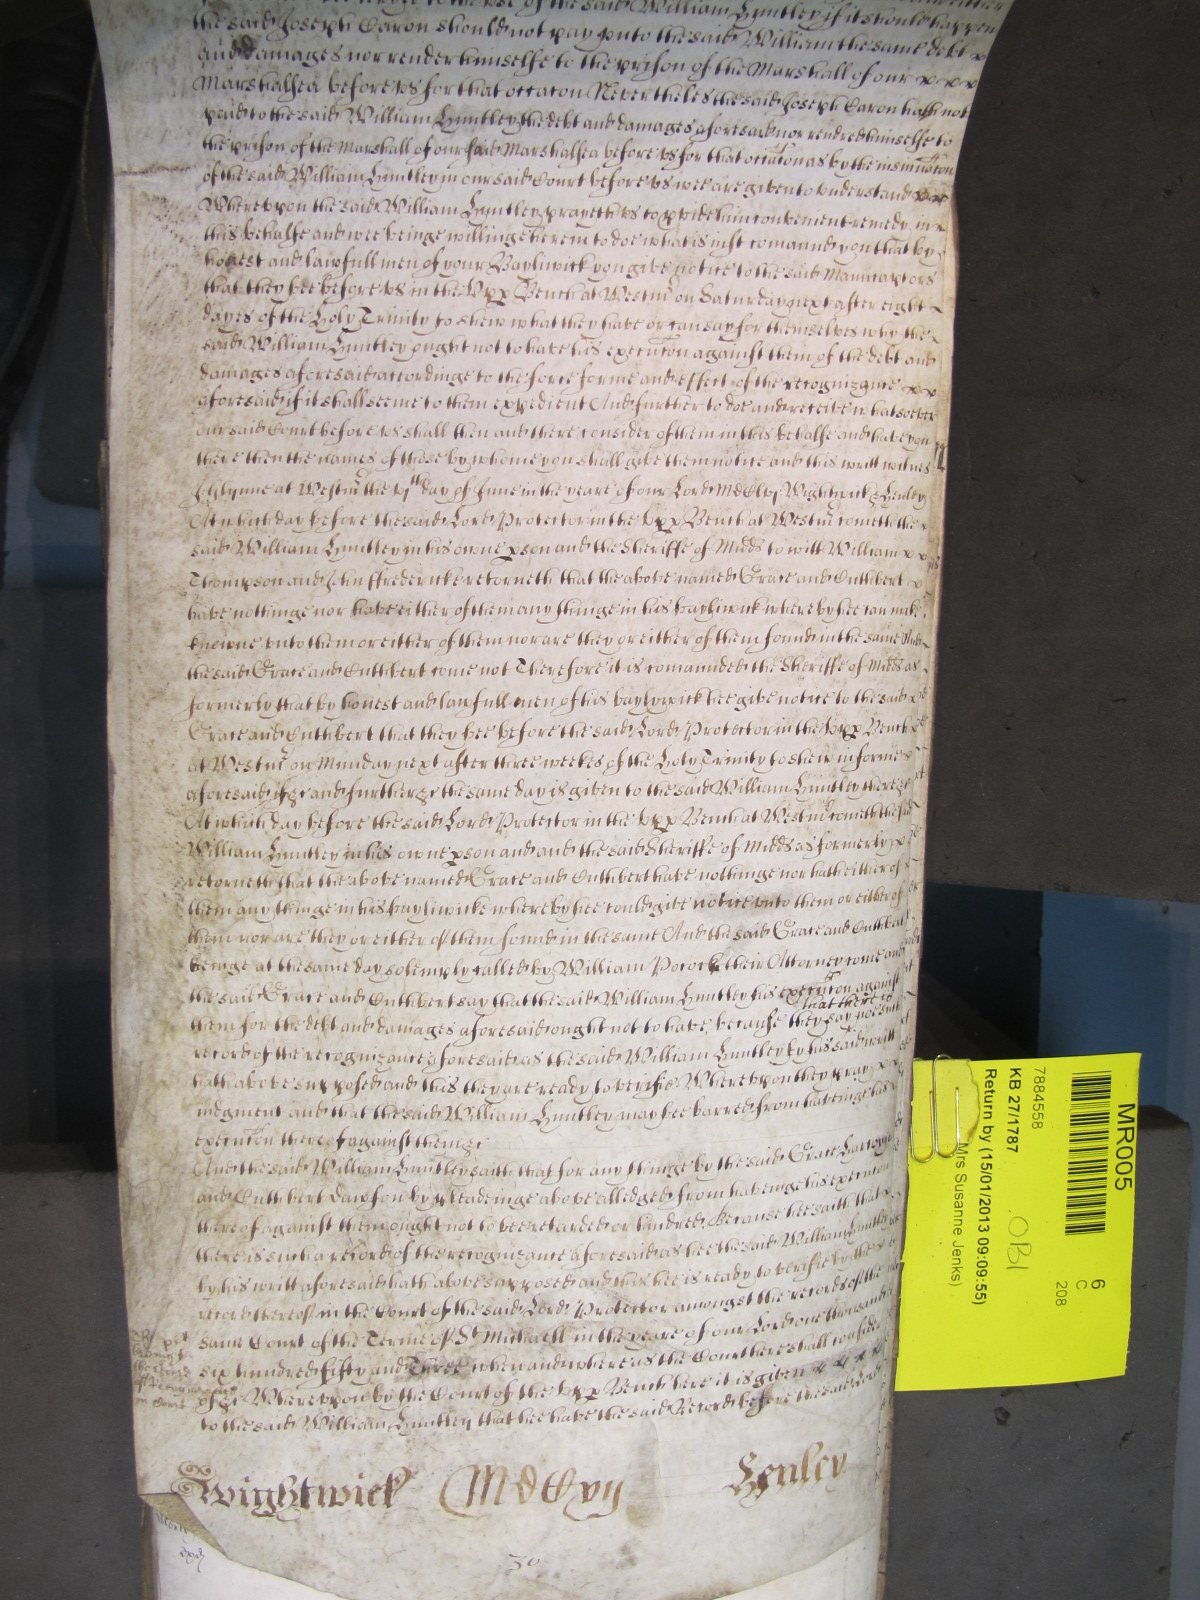 the said Joseph Caron should not pay unto the said William the same debt
and damages nor render himselfe to the prison of the Marshall of our
Marshalsea before us for that occacon Neverthelesse the said Joseph Caron hath not
paid to the said William Huntley the debt and damages aforesaid nor rendred himselfe to
the prison of the Marshall of our said Marshalsea before us for that occacon as by the insinuacon
of the said William Huntley in our said Court before us wee are given to understand
Whereupon the said William Huntley prayeth us to pvide him convenient remedy in
this behalfe and wee beinge willinge herein to doe what is just comaund you that by
honest and lawfull men of your Bayliwick you give notice to the said Manucaptors
that they bee before us in the Upp Bench at Westm on Saturday next after eight
dayes of the Holy Trinity to shew what they have or can say for themselves why the
said William Huntley ought not to have his execucon against them of the debt and
damages aforesaid accordinge to the force forme and effect of the recognizance
aforesaid if it shall seeme to them expedient And further to doe and receive whatsoever
our said Court before us shall then and there consider of them in this behalfe and have you
there then the names of those by whome you shall give them notice and this writt witnes
Glynne at Westm the day of June in the yeare of our Lord Wightwick & Henley
At which day before the said Lord Protector in the Upp Bench at Westm cometh the
said William Huntley in his owne pson and the Sheriffe of Midds to witt William
Thompson and John Fredericke retorneth that the above named Grace and Cuthbert
have nothinge nor have either of them any thinge in his bayliwick whereby hee can make
knowne unto them or either of them nor are they or either of them found in the same And
the said Grace and Cuthbert come not Therefore it is comaunded the Sheriffe of Midds as
formerly that by honest and lawfull men of his baylywick hee give notice to the said
Grace and Cuthbert that they bee before the said Lord Protector in the Upp Bench
at Westm on Munday next after three weekes of the Holy Trinity to shew in forme
aforesaid if &c and further &c the same day is given to the said William Huntley there &c
At which day before the said Lord Protector in the Upp Bench at Westm cometh the said
William Huntley in his owne pson and and the said Sheriffe of Midds as formerly
retorneth that the above named Grace and Cuthbert have nothinge nor hath either of
them any thinge in his bayliwicke whereby hee could give notice unto them or either of
them nor are they or either of them found in the same And the said Grace and Cuthbert
beinge at the same day solemnly called by William Pocock their Attorney come and
the said Grace and Cuthbert say that the said William Huntley his execucon against
them for the debt and damages aforesaid ought not to have because they say that there is noe such
record of the recognizance aforesaid as the said William Huntley by his said writt
hath above supposed and this they are ready to verifie Whereupon they pray
judgment and that the said William Huntley may bee barred from havinge his
execucon thereof against them &c
And the said William Huntley saith that for any thinge by the said Grace
and Cuthbert Dawson by pleadeinge above alledged from haveinge his execucon
thereof against them ought not to bee retarded or hindred Because hee saith that
there is such a record of the recognizance aforesaid as hee the said William Huntley
by his writt aforesaid hath above supposed and this hee is ready to verifie by the
record thereof in the Court of the said Lord Protector amongst the records of the
same Court of the Terme of St Michaell in the yeare of our Lord one thousand
six hundred fifty and Three when and where as the Court here shall consider
of &c Whereupon by the Court of the Upp Bench here it is given
to the said William Huntley that hee have the said Record before the said Lord
Wightwick Henley
30
MR005
7884558
KB 27/1787
Return by (15/01/2013 09:09:55)
Mrs Susanne Jenks)
OBI
6
C
208